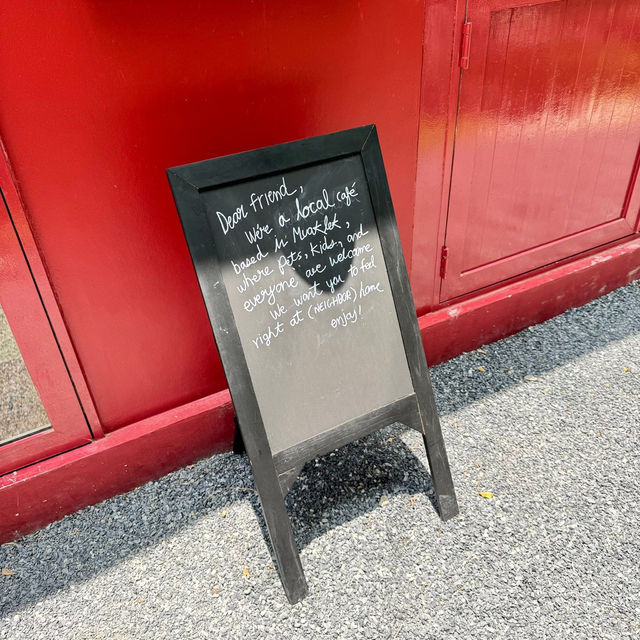 Dear friend,
We're a local café
based in Muaklek,
where pets, kids, and
everyone are welcome
We want you to feel
right at (NEIGHBOR) home
enjoy!